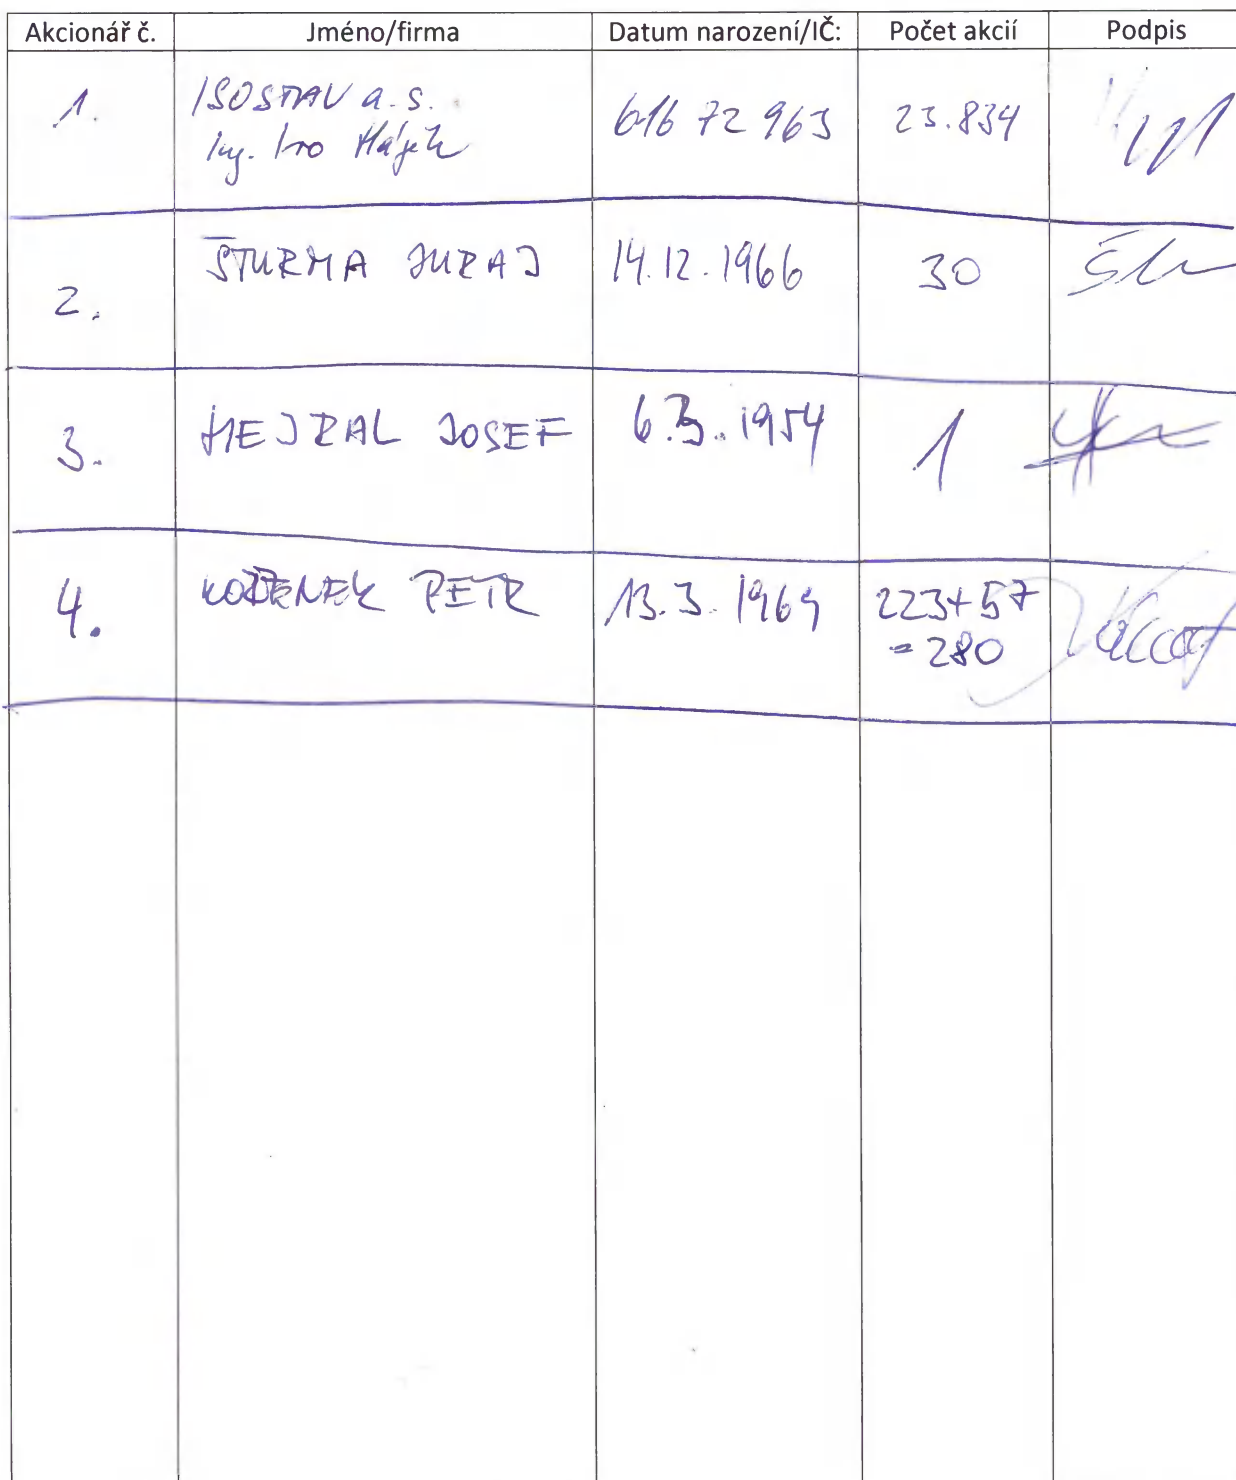 Akcionář č. Jméno/firma Datum narození/IČ: Počet akcií Podpis
1. ISOSTAV a.s. 616 72 963 23.834
Ing. Ivo Hájek
2. ŠTURMA JURAJ 14.12.1966 30
3. HEJRAL JOSEF 6.3.1954 1
4. KOŘENEK PETR 13.3.1969 223+57
= 280